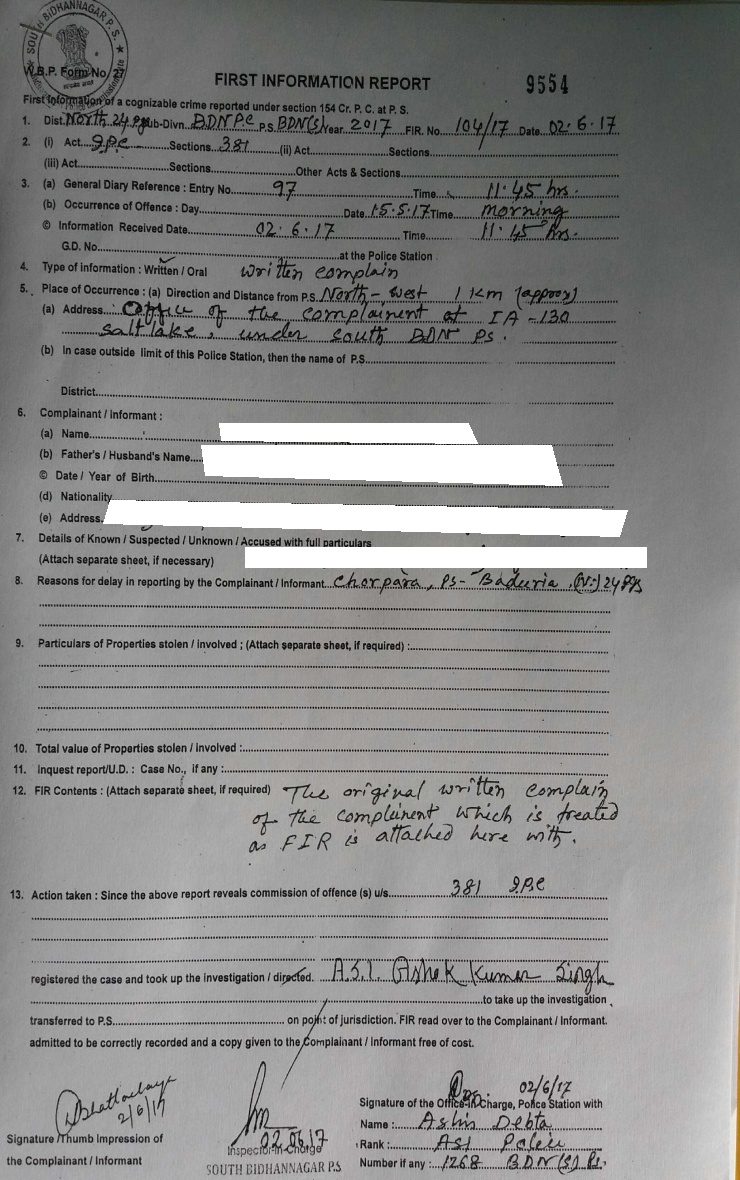 SOUTH BIDHANNAGAR P.S.
W.B.P. Form No. 27
FIRST INFORMATION REPORT 9554
First Information of a cognizable crime reported under section 154 Cr. P. C. at P. S.
1. Dist. North 24 Pgs Sub-Divn. BDN P.C P.S. BDN(S) Year 2017 FIR. No. 104/17 Date 02.6.17
2. (i) Act. IPC Sections 381 (ii) Act. Sections.
(iii) Act. Sections. Other Acts & Sections.
3. (a) General Diary Reference : Entry No. 97 Time 11.45 hrs.
(b) Occurrence of Offence : Day. Date 15.5.17 Time morning
© Information Received Date. 02.6.17 Time. 11.45 hrs.
G.D. No. at the Police Station
4. Type of information : Written / Oral written complain
5. Place of Occurrence : (a) Direction and Distance from P.S. North-West 1 Km (approx)
(a) Address. Office of the complainent at IA-130
saltlake, under south BDN PS.
(b) In case outside limit of this Police Station, then the name of P.S.
District.
6. Complainant / Informant :
(a) Name.
(b) Father's / Husband's Name.
© Date / Year of Birth.
(d) Nationality
(e) Address.
7. Details of Known / Suspected / Unknown / Accused with full particulars
(Attach separate sheet, if necessary)
8. Reasons for delay in reporting by the Complainant / Informant. Chorpara, PS- Baduria, (N) 24 Pgs
9. Particulars of Properties stolen / involved ; (Attach separate sheet, if required) :
10. Total value of Properties stolen / involved :
11. Inquest report/U.D. : Case No., if any :
12. FIR Contents : (Attach separate sheet, if required) The original written complain
of the complainent which is treated
as FIR is attached here with.
13. Action taken : Since the above report reveals commission of offence (s) u/s. 381 IPC
registered the case and took up the investigation / directed. A.S.I. Ashok Kumar Singh
to take up the investigation
transferred to P.S. on point of jurisdiction. FIR read over to the Complainant / Informant.
admitted to be correctly recorded and a copy given to the Complainant / Informant free of cost.
2/6/17
02/6/17
Signature of the Office-in Charge, Police Station with
Name : Ashis Debta
02.06.17
Signature / Thumb Impression of
the Complainant / Informant
Inspector-in-Charge
SOUTH BIDHANNAGAR P.S
Rank : ASI Police
Number if any : 1268 BDN(S) PS.